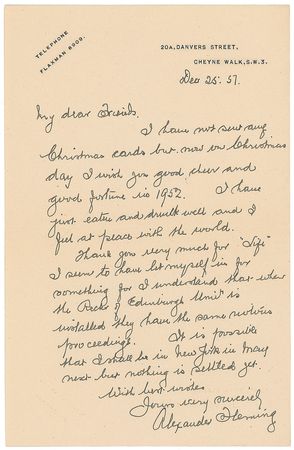 TELEPHONE
FLAXMAN 8009.
20A, DANVERS STREET,
CHEYNE WALK, S.W.3.
Dec 25. 51.
My dear Friends.
I have not sent any
Christmas cards but now on Christmas
day I wish you good cheer and
good fortune in 1952. I have
just eaten and drunk well and I
feel at peace with the world.
Thank you very much for "Life"
I seem to have let myself in for
something for I understand that when
the Rector of Edinburgh Univ is
installed they have the same riotous
proceedings. It is possible
that I shall be in New York in May
next but nothing is settled yet.
With best wishes
Yours very sincerely
Alexander Fleming